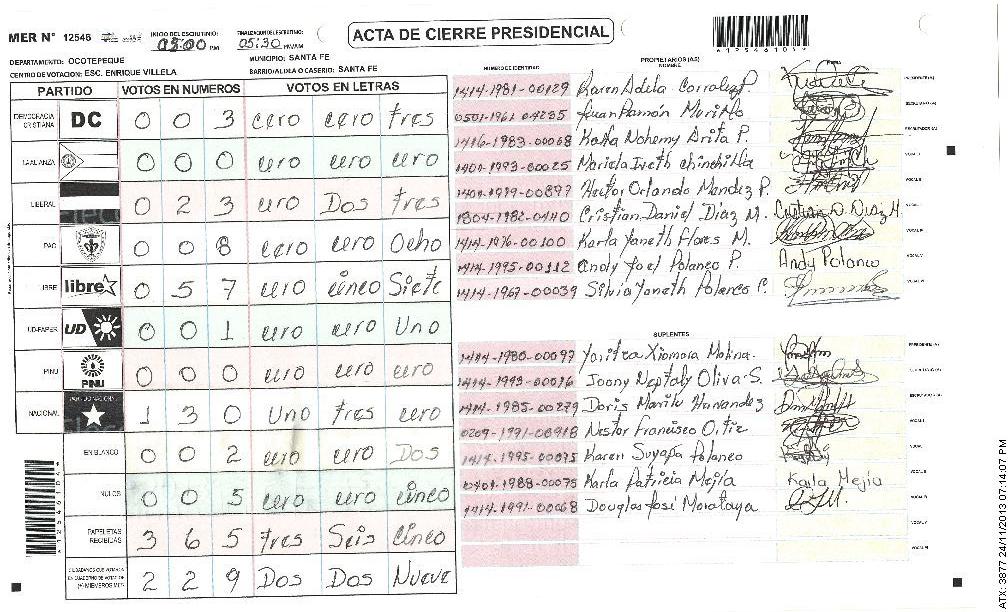 MER Nº 12546 INICIO DEL ESCRUTINIO: 03:00 PM FINALIZACION ESCRUTINIO: 05:30 PM/AM
ACTA DE CIERRE PRESIDENCIAL
DEPARTAMENTO: OCOTEPEQUE MUNICIPIO: SANTA FE
CENTRO DE VOTACION: ESC. ENRIQUE VILLELA BARRIO/ALDEA O CASERIO: SANTA FE
PARTIDO VOTOS EN NUMEROS VOTOS EN LETRAS
DEMOCRACIA CRISTIANA DC 0 0 3 cero cero tres
LA ALIANZA 0 0 0 cero cero cero
LIBERAL 0 2 3 cero Dos tres
PAC 0 0 8 cero cero Ocho
LIBRE libre 0 5 7 cero cinco Siete
UD-FAPER UD 0 0 1 cero cero Uno
PINU PINU 0 0 0 cero cero cero
NACIONAL PARTIDO NACIONAL 1 3 0 Uno tres cero
EN BLANCO 0 0 2 cero cero Dos
NULOS 0 0 5 cero cero cinco
PAPELETAS RECIBIDAS 3 6 5 tres Seis cinco
CIUDADANOS QUE VOTARON EN CUADERNO DE VOTACION (+) MIEMBROS MER 2 2 9 Dos Dos Nueve
PROPIETARIOS (AS)
NUMERO IDENTIDAD NOMBRE FIRMA
1414-1981-00129 Karen Adela Corrales P. PRESIDENTE (A)
0501-1961-04235 Juan Ramón Murillo SECRETARIO (A)
1416-1983-00068 Katia Nohemy Arita P. ESCRUTADOR (A)
1401-1993-00025 Mariela Iveth Chinchilla VOCAL I
1401-1979-00897 Hector Orlando Mendez P. VOCAL II
1804-1982-04140 Cristian Daniel Díaz M. VOCAL III
1414-1976-00100 Karla Yaneth Flores M. VOCAL IV
1414-1995-00112 Andy Joel Polanco P. Andy Polanco VOCAL V
1414-1967-00039 Silvia Janeth Polanco C. VOCAL VI
SUPLENTES
1414-1980-00097 Yaritza Xiomara Molina. PRESIDENTE (A)
1414-1993-00016 Joony Neptaly Oliva S. SECRETARIO (A)
1414-1985-00279 Doris Marilu Hernandez ESCRUTADOR (A)
0209-1991-00918 Nestor Francisco VOCAL I
1414-1995-00075 Karen Suyapa Polanco VOCAL II
0401-1988-00075 Karla Patricia Mejía Karla Mejia VOCAL III
1414-1991-00068 Douglas José Morataya VOCAL IV
VOCAL V
VOCAL VI
ATX: 3877 24/11/2013 07:14:07 PM